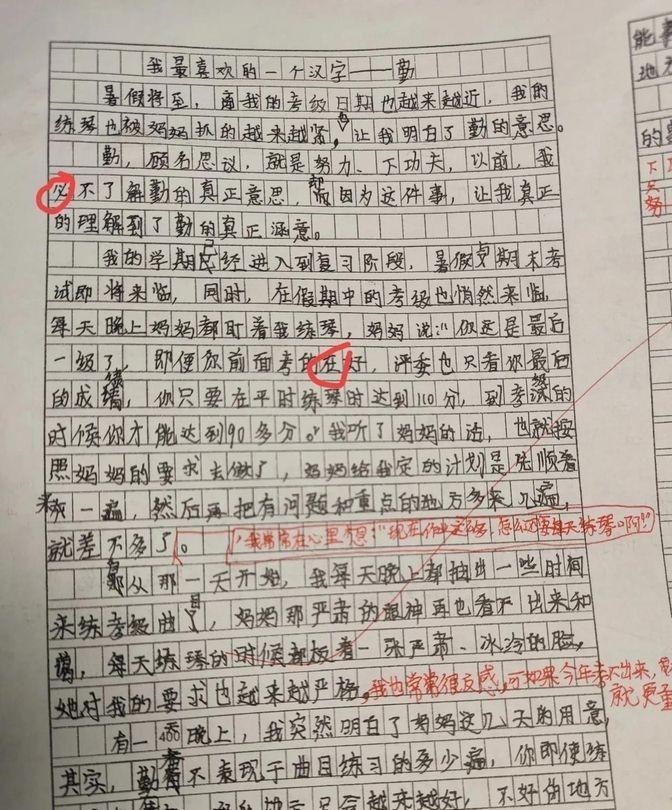 我最喜欢的一个汉字——勤
暑假将至，离我的考级日期也越来越近，我的
练琴也被妈妈抓的越来越紧，让我明白了勤的意思。
勤，顾名思议，就是努力、下功夫，以前，我
必不了解勤的真正意思，却因为这件事，让我真正
的理解到了勤的真正涵意。
我的学期已经进入到复习阶段，暑假与期末考
试即将来临，同时，在假期中的考级也悄然来临，
每天晚上妈妈都盯着我练琴，妈妈说："你这是最后
一级了，即便你前面考的在好，评委也只看你最后
的成绩，你只要在平时练琴时达到110分，到考级的
时候你才能达到90多分。"我听了妈妈的话，也就按
照妈妈的要求去做了，妈妈给我定的计划是先顺着
来一遍，然后再把有问题和重点的地方多来几遍，
就差不多了。
我常常在心里想："现在作业这么多，怎么还要每天练琴啊?"
自从那一天开始，我每天晚上都抽出一些时间
来练考级曲目，妈妈那严肃的眼神再也看不出来和
蔼，每天练琴的时候都板着一张严肃、冰冷的脸，
她对我的要求也越来越严格，我也常常很反感，可如果今年考不出来，
就更
有一天晚上，我突然明白了妈妈这几天的用意，
其实，勤不表现于曲目练习的多少遍，你即使练
会越来越好，不好的地方
能
地
的
下
努